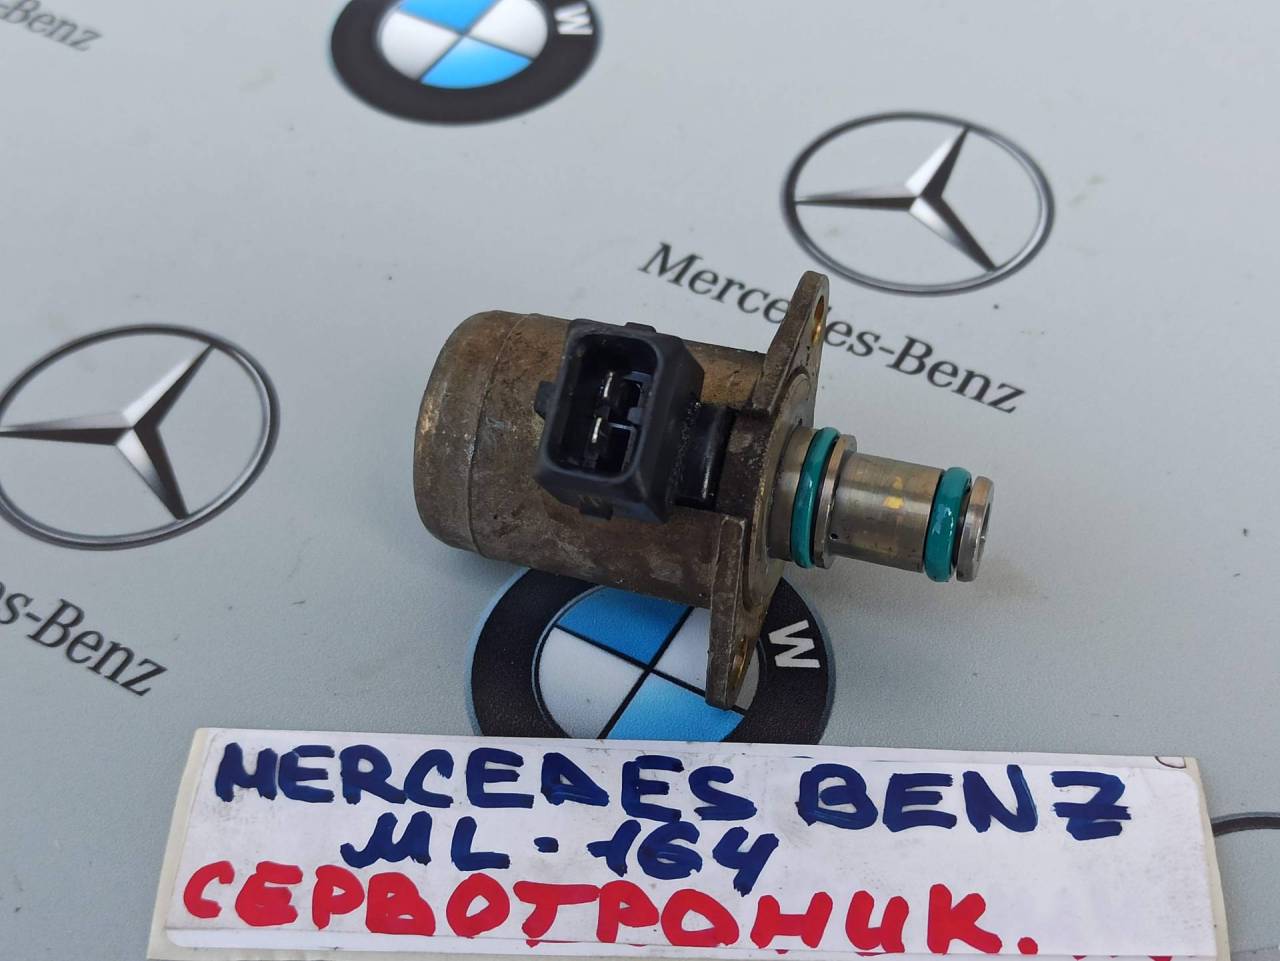 -Benz
W
Mercedes-Benz
s-Benz
W
MERCEDES BENZ
ML-164
СЕРВОТРОНИК.